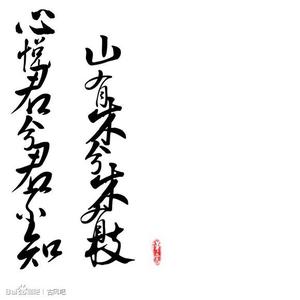 山有木兮木有枝
心悦君兮君不知
Baidu贴吧 | 古风吧